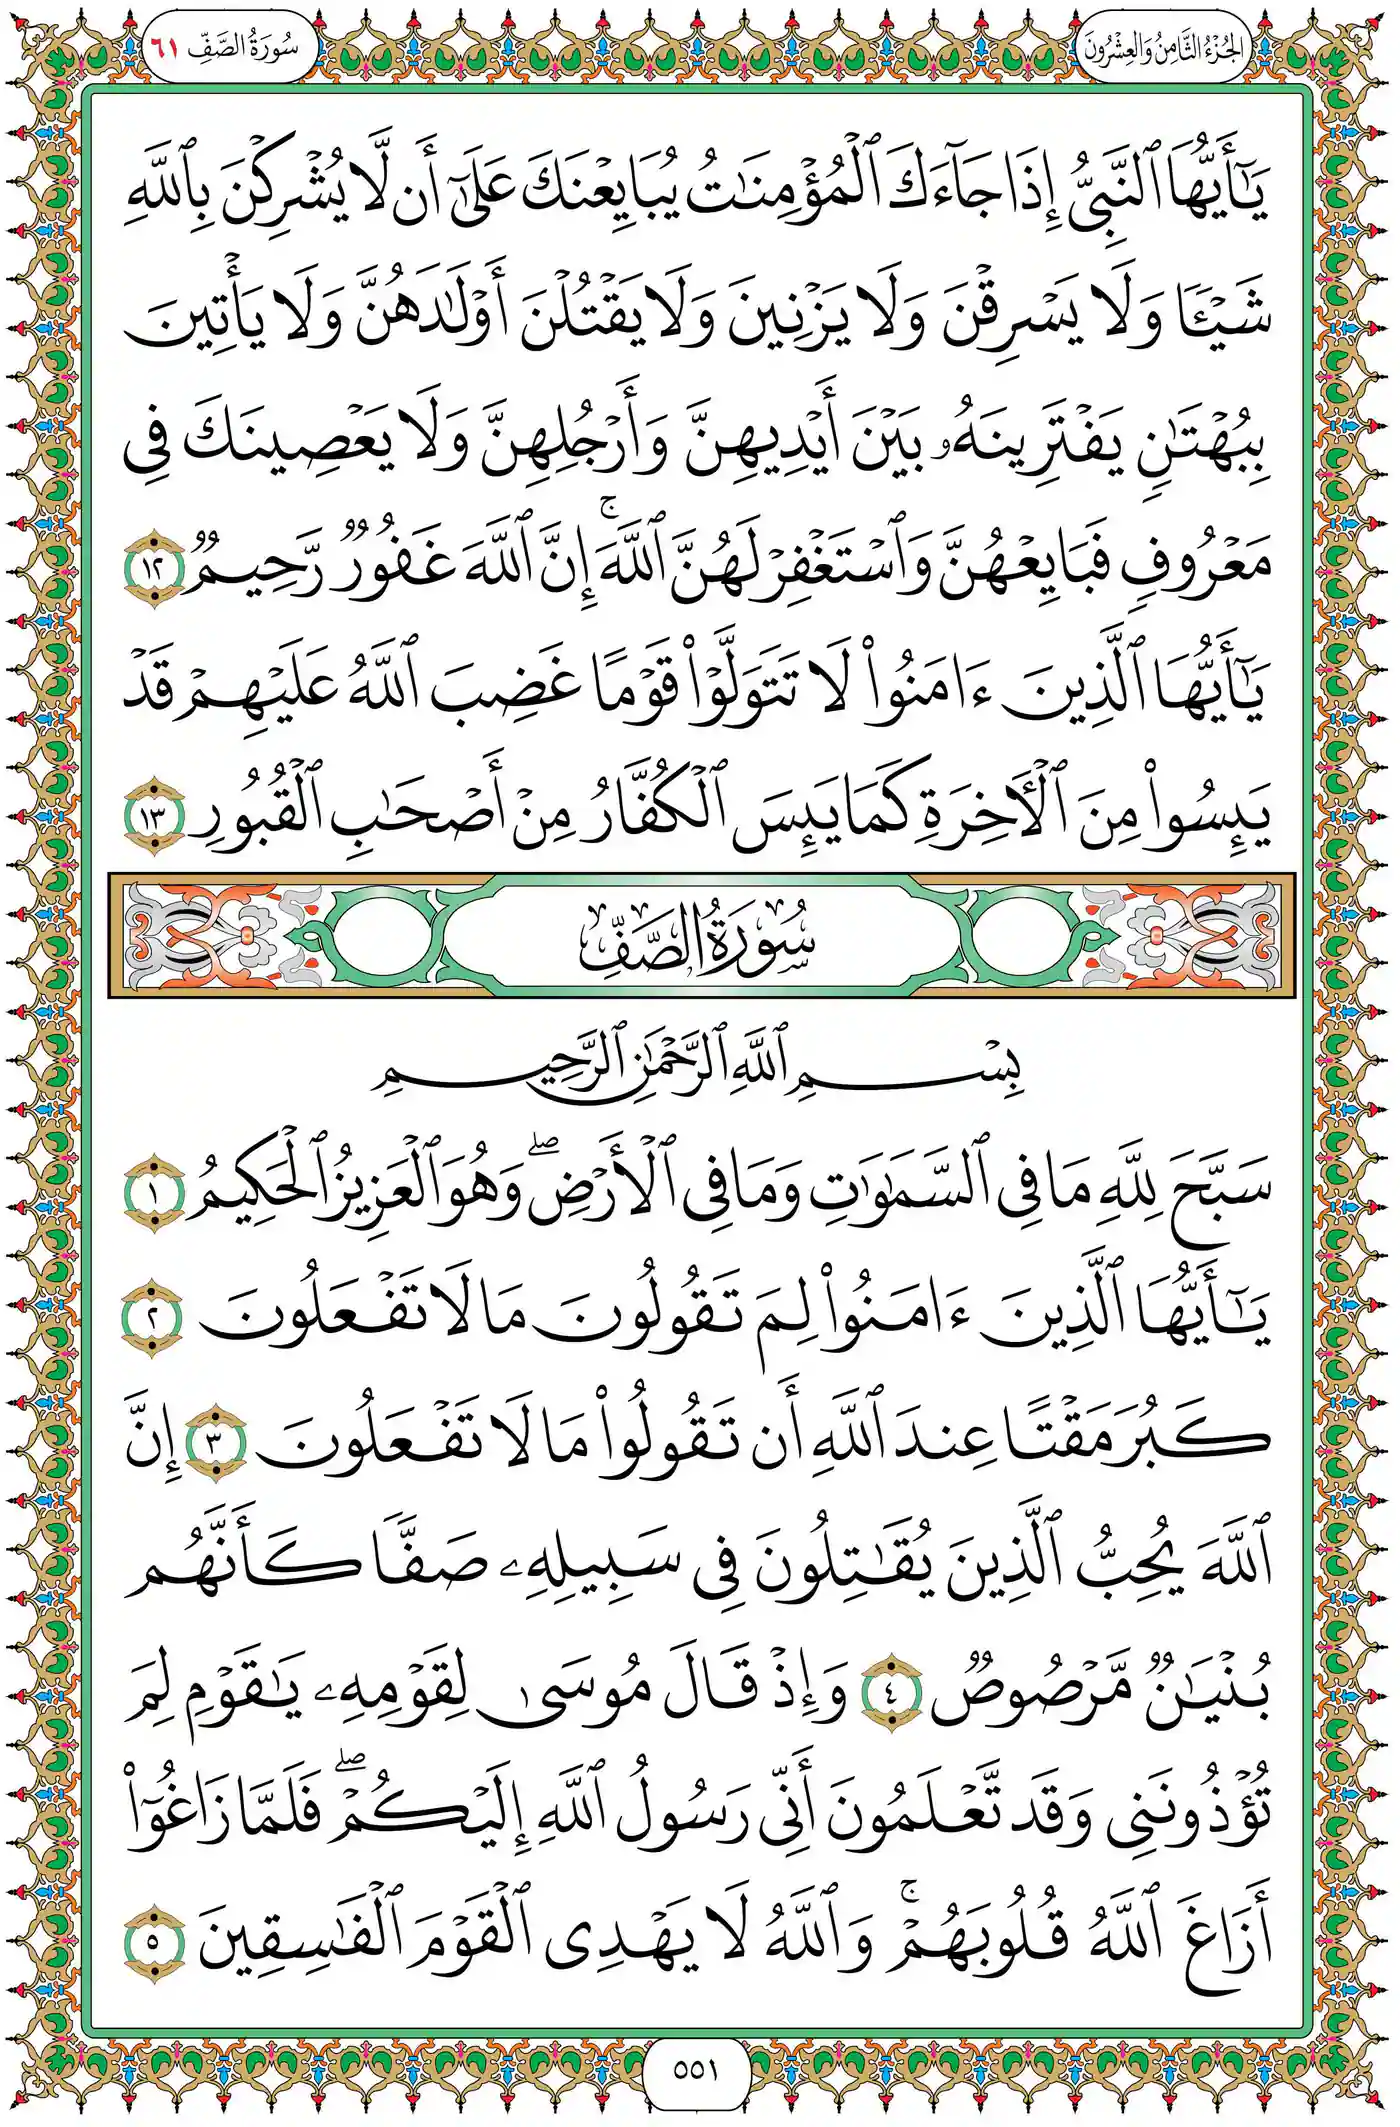 الجُزْءُ الثَّامِنُ وَالعِشْرُونَ
سُورَةُ الصَّفِّ ٦١
يَٰٓأَيُّهَا ٱلنَّبِىُّ إِذَا جَآءَكَ ٱلْمُؤْمِنَٰتُ يُبَايِعْنَكَ عَلَىٰٓ أَن لَّا يُشْرِكْنَ بِٱللَّهِ
شَيْـًٔا وَلَا يَسْرِقْنَ وَلَا يَزْنِينَ وَلَا يَقْتُلْنَ أَوْلَٰدَهُنَّ وَلَا يَأْتِينَ
بِبُهْتَٰنٍ يَفْتَرِينَهُۥ بَيْنَ أَيْدِيهِنَّ وَأَرْجُلِهِنَّ وَلَا يَعْصِينَكَ فِى
مَعْرُوفٍ فَبَايِعْهُنَّ وَٱسْتَغْفِرْ لَهُنَّ ٱللَّهَ ۚ إِنَّ ٱللَّهَ غَفُورٌ رَّحِيمٌ ١٢
يَٰٓأَيُّهَا ٱلَّذِينَ ءَامَنُوا۟ لَا تَتَوَلَّوْا۟ قَوْمًا غَضِبَ ٱللَّهُ عَلَيْهِمْ قَدْ
يَئِسُوا۟ مِنَ ٱلْـَٔاخِرَةِ كَمَا يَئِسَ ٱلْكُفَّارُ مِنْ أَصْحَٰبِ ٱلْقُبُورِ ١٣
سُورَةُ الصَّفِّ
بِسْمِ ٱللَّهِ ٱلرَّحْمَٰنِ ٱلرَّحِيمِ
سَبَّحَ لِلَّهِ مَا فِى ٱلسَّمَٰوَٰتِ وَمَا فِى ٱلْأَرْضِ ۖ وَهُوَ ٱلْعَزِيزُ ٱلْحَكِيمُ ١
يَٰٓأَيُّهَا ٱلَّذِينَ ءَامَنُوا۟ لِمَ تَقُولُونَ مَا لَا تَفْعَلُونَ ٢
كَبُرَ مَقْتًا عِندَ ٱللَّهِ أَن تَقُولُوا۟ مَا لَا تَفْعَلُونَ ٣ إِنَّ
ٱللَّهَ يُحِبُّ ٱلَّذِينَ يُقَٰتِلُونَ فِى سَبِيلِهِۦ صَفًّا كَأَنَّهُم
بُنْيَٰنٌ مَّرْصُوصٌ ٤ وَإِذْ قَالَ مُوسَىٰ لِقَوْمِهِۦ يَٰقَوْمِ لِمَ
تُؤْذُونَنِى وَقَد تَّعْلَمُونَ أَنِّى رَسُولُ ٱللَّهِ إِلَيْكُمْ ۖ فَلَمَّا زَاغُوٓا۟
أَزَاغَ ٱللَّهُ قُلُوبَهُمْ ۚ وَٱللَّهُ لَا يَهْدِى ٱلْقَوْمَ ٱلْفَٰسِقِينَ ٥
٥٥١